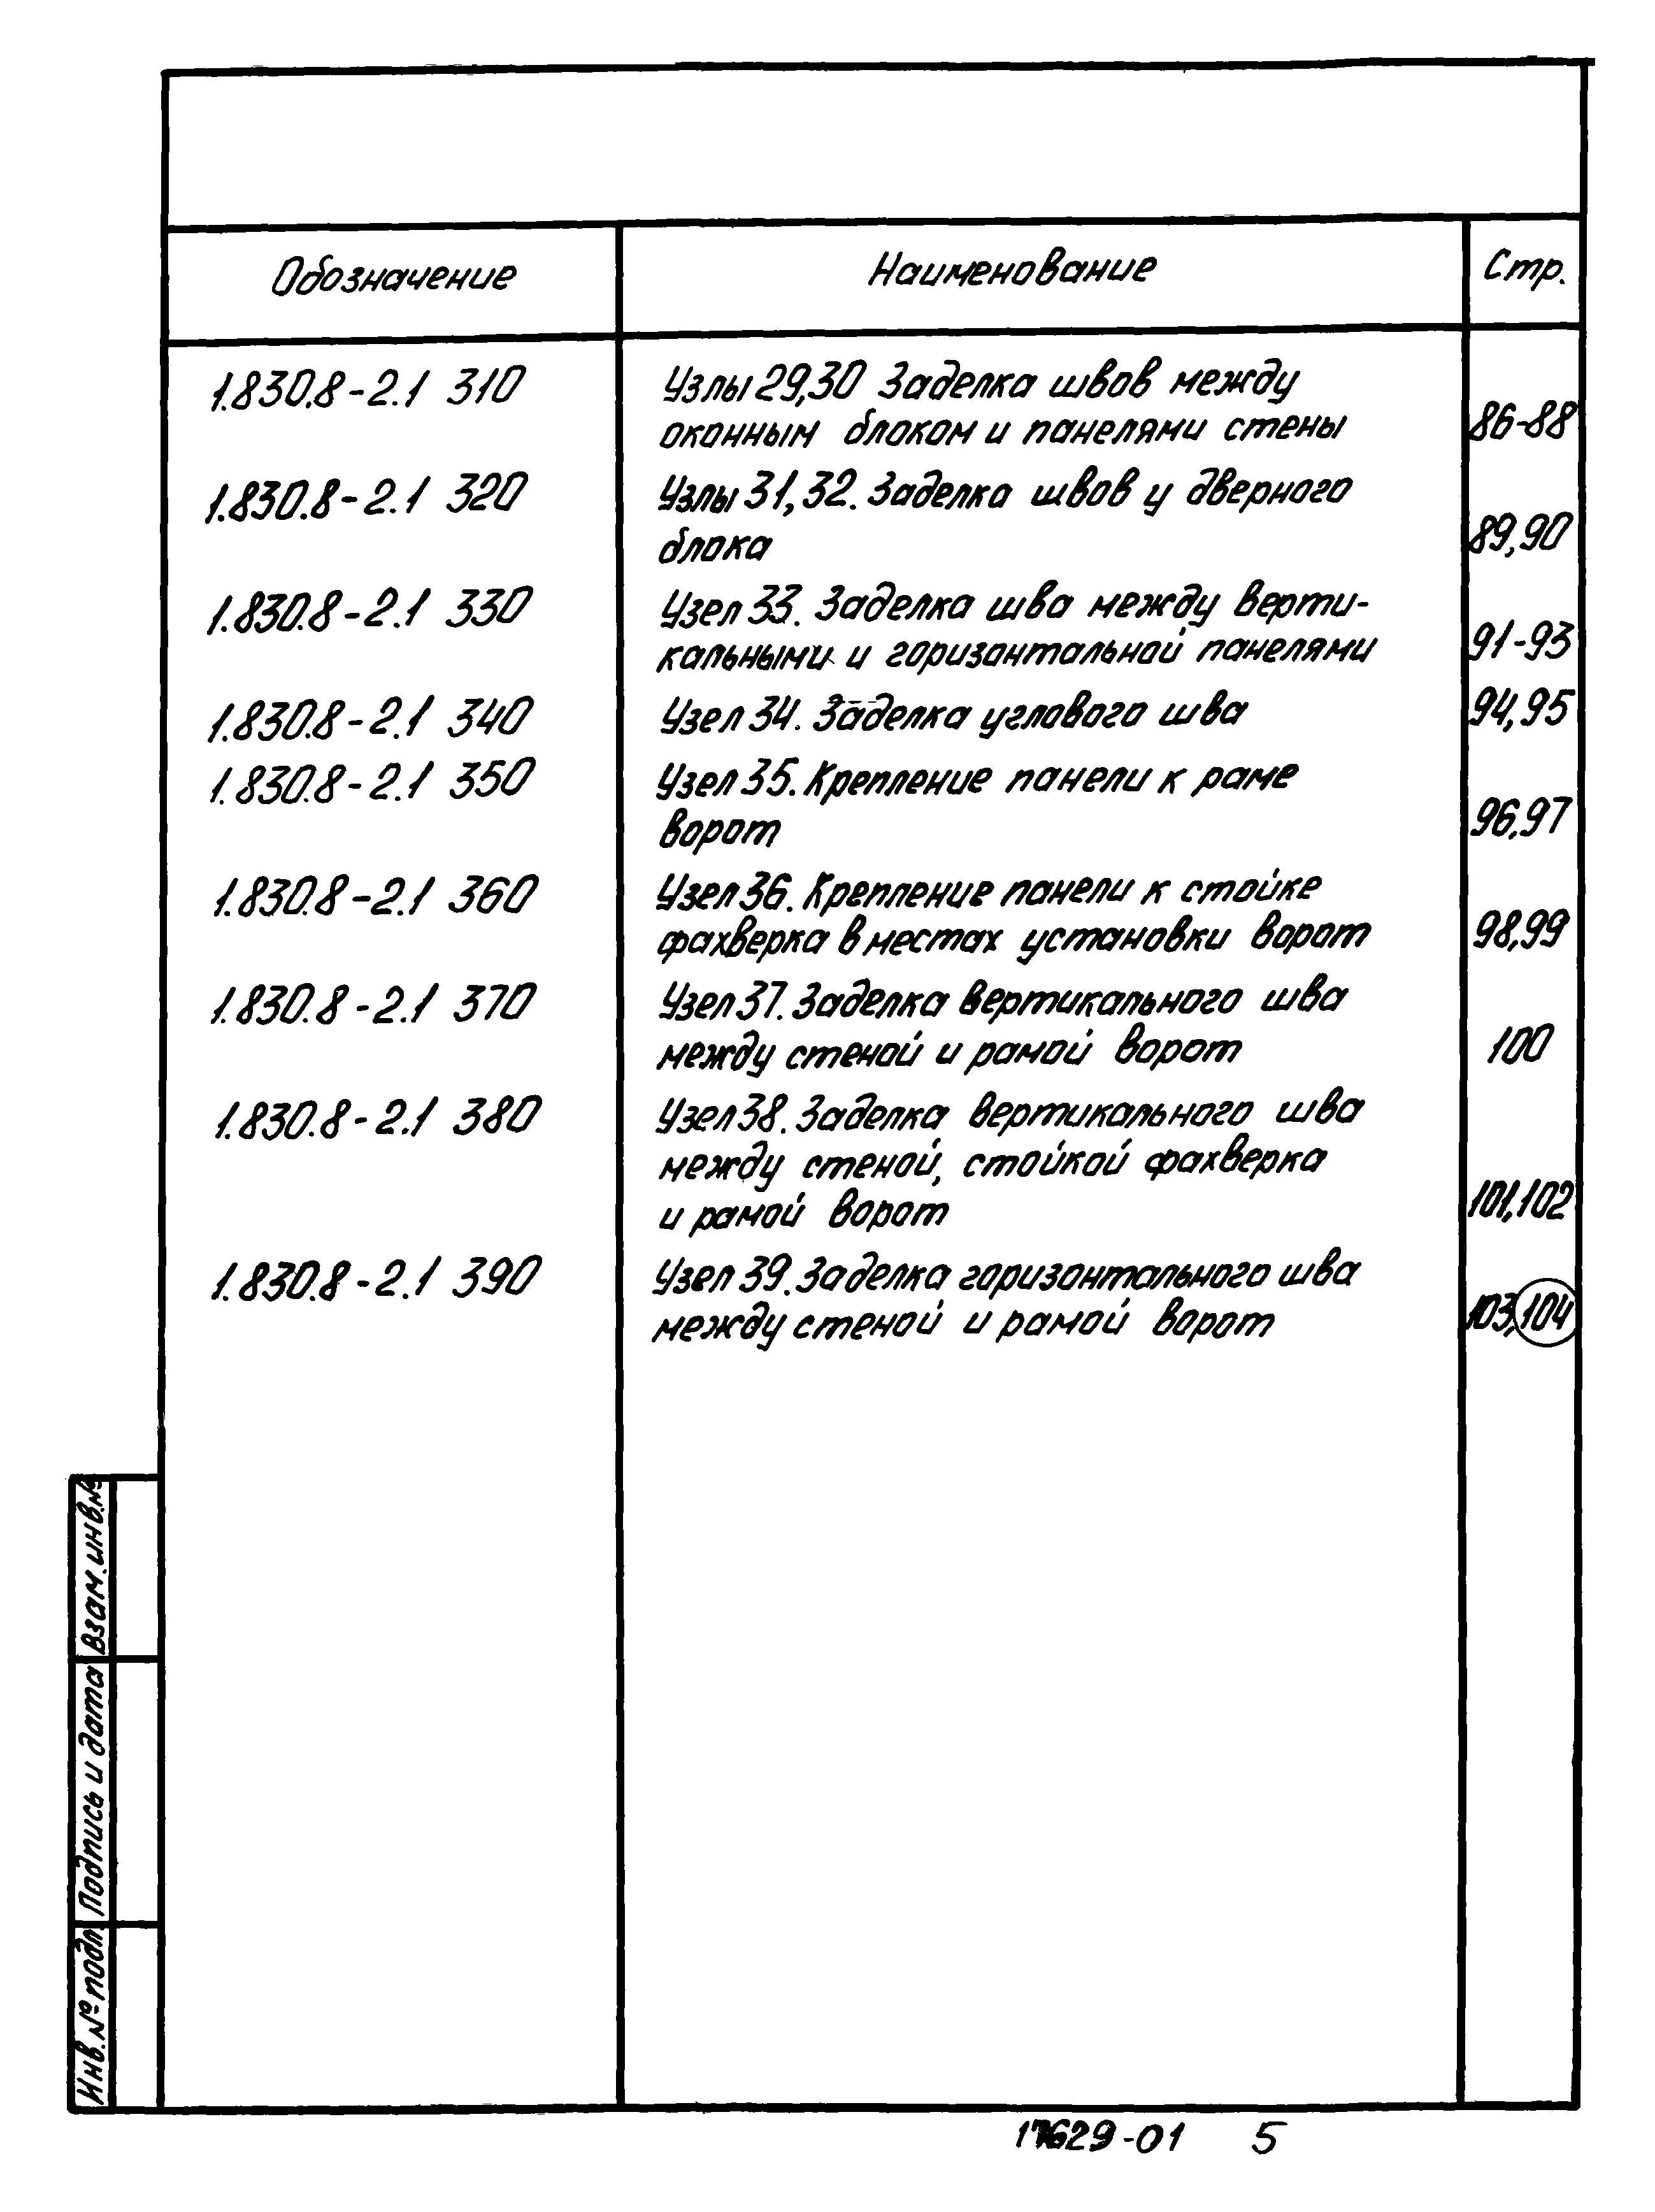 Обозначение Наименование Стр.
1.830.8-2.1 310 Узлы 29,30 Заделка швов между
оконным блоком и панелями стены 86-88
1.830.8-2.1 320 Узлы 31,32. Заделка швов у дверного
блока 89,90
1.830.8-2.1 330 Узел 33. Заделка шва между верти-
кальными и горизонтальной панелями 91-93
1.830.8-2.1 340 Узел 34. Заделка углового шва 94,95
1.830.8-2.1 350 Узел 35. Крепление панели к раме
ворот 96,97
1.830.8-2.1 360 Узел 36. Крепление панели к стойке
фахверка в местах установки ворот 98,99
1.830.8-2.1 370 Узел 37. Заделка вертикального шва
между стеной и рамой ворот 100
1.830.8-2.1 380 Узел 38. Заделка вертикального шва
между стеной, стойкой фахверка
и рамой ворот 101,102
1.830.8-2.1 390 Узел 39. Заделка горизонтального шва
между стеной и рамой ворот 103,104
Взам.инв.№
Подпись и дата
Инв.№ подл.
17629-01 5